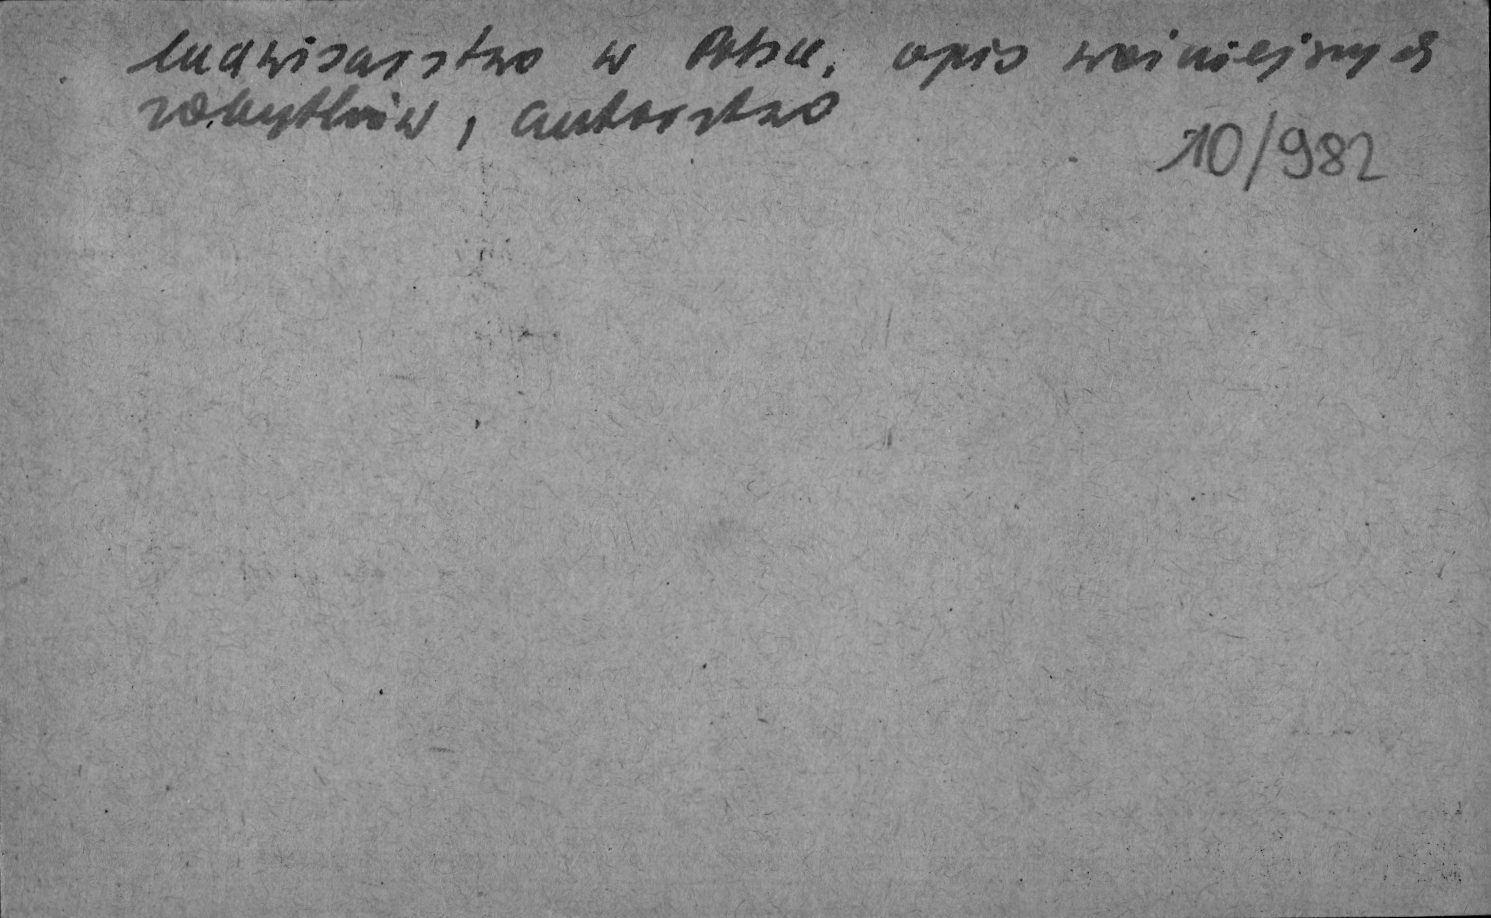 ludwisarstwo w Polsce, opis ważniejszych
zabytków, autorstwo
10/982